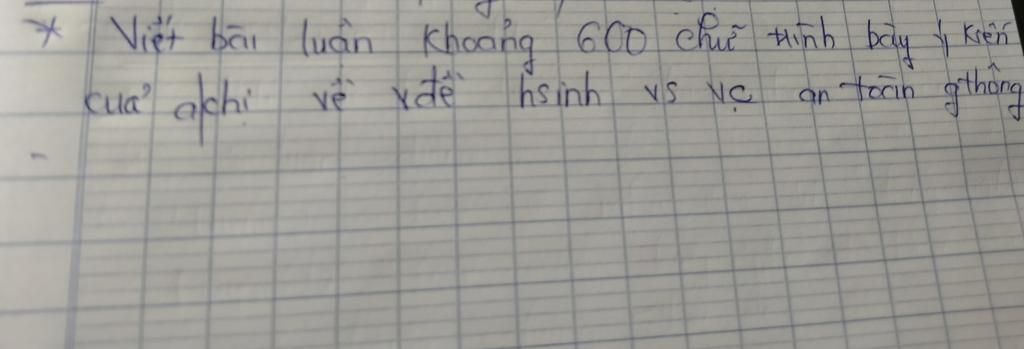 * Viết bài luận khoảng 600 chữ trình bày ý kiến
của a/chị về vđề hsinh vs vc an toàn gthông
-